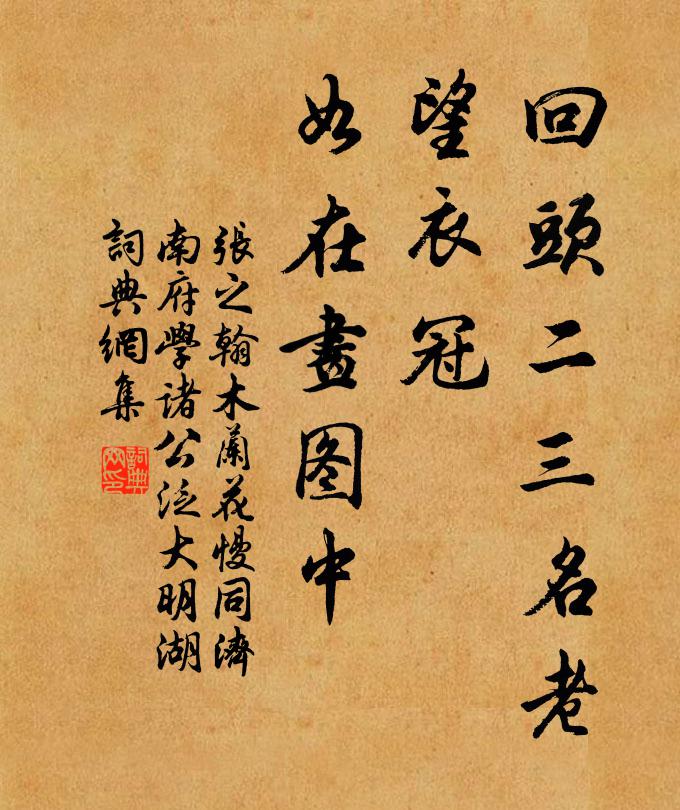 回頭二三名老
望衣冠
如在畫图中
張之翰木蘭花慢同濟
南府學諸公泛大明湖
詞典網集
詞典
网印